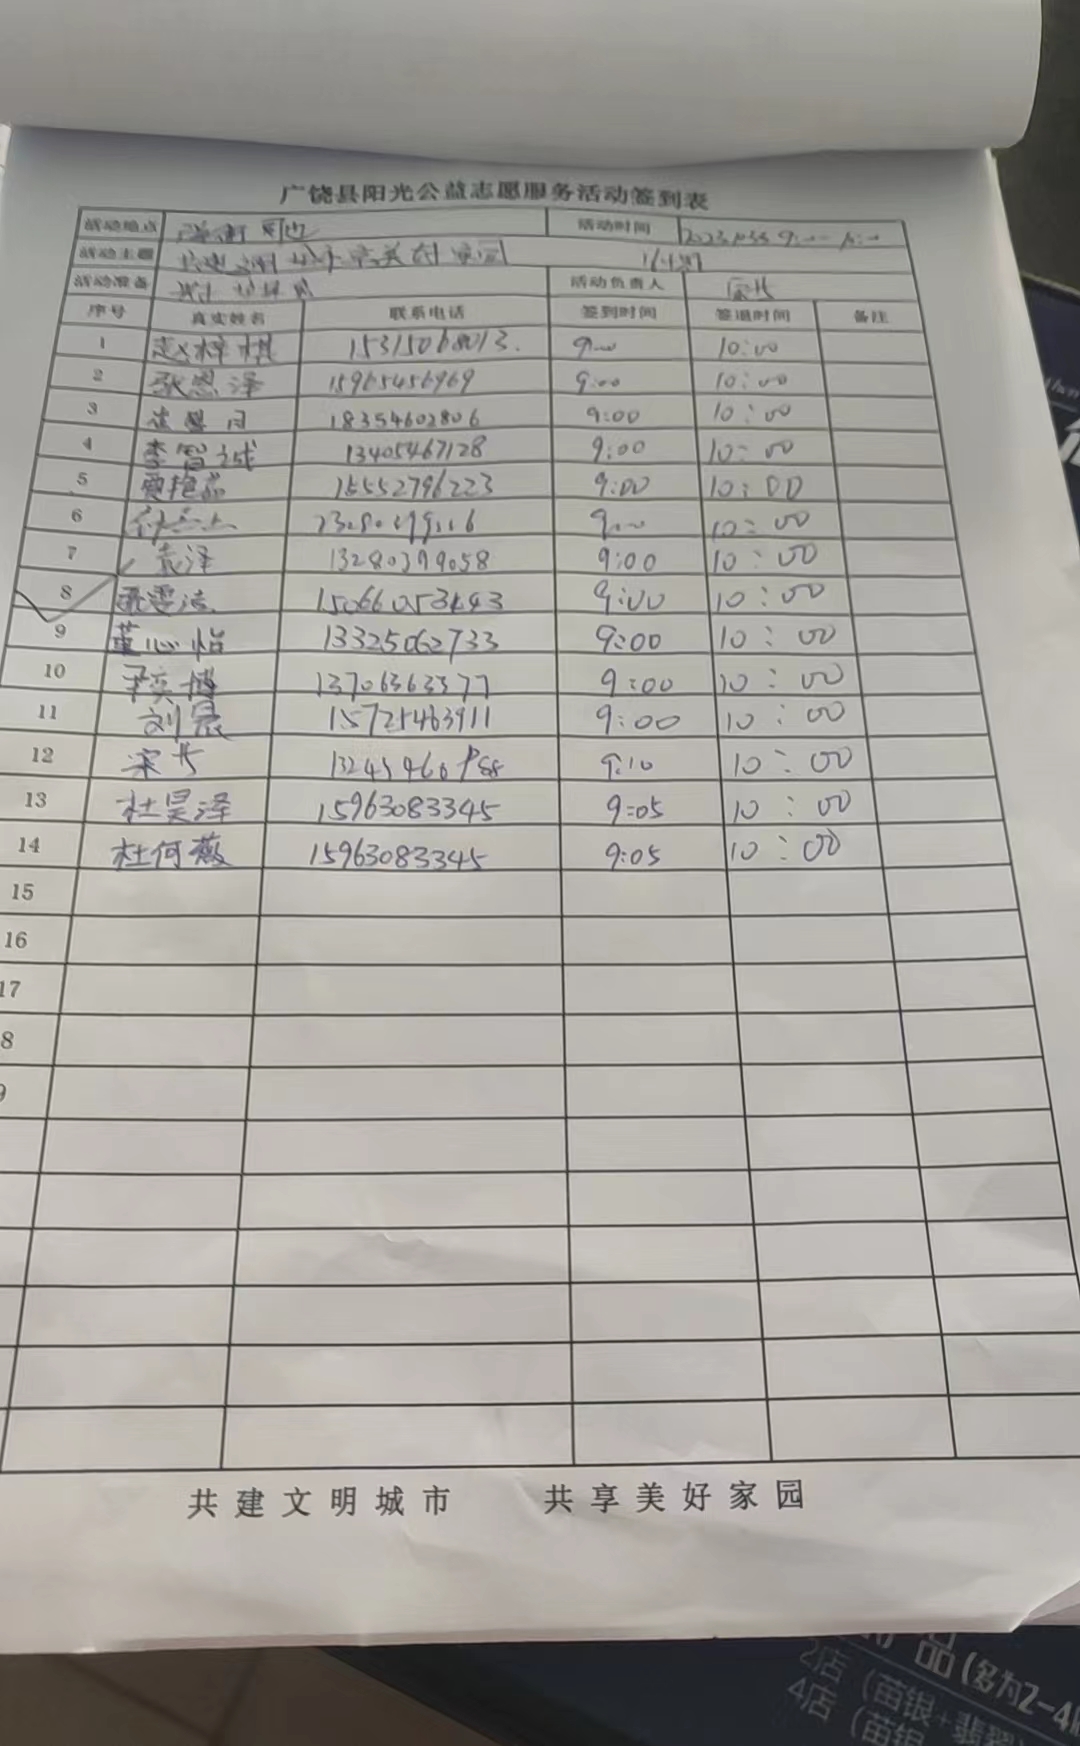 广饶县阳光公益志愿服务活动签到表
活动地点 周边 活动时间
活动主题 共建文明城市 共享美好家园
活动准备 活动负责人
序号 真实姓名 联系电话 签到时间 签退时间 备注
1 赵梓棋 15315068013. 9:00 10:00
2 张恩泽 15965456969 9:00 10:00
3 18354602806 9:00 10:00
4 李智诚 13405467128 9:00 10:00
5 贾艳茹 15552796223 9:00 10:00
6 9:00 10:00
7 袁泽 13280399058 9:00 10:00
8 9:00 10:00
9 董心怡 13325062733 9:00 10:00
10 尹奕博 13706363377 9:00 10:00
11 刘晨 15725463911 9:00 10:00
12 9:10 10:00
13 杜昊泽 15963083345 9:05 10:00
14 杜何薇 15963083345 9:05 10:00
15
16
17
8
9
共建文明城市 共享美好家园
品(多为2-4
2店(苗银+翡翠)
4店(苗银